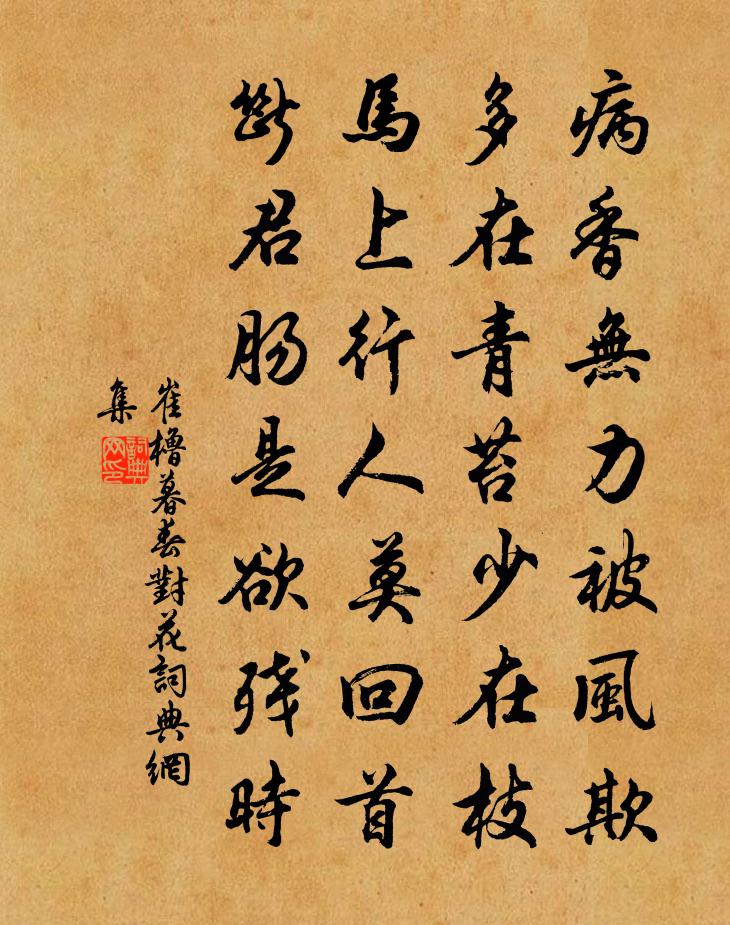 病香無力被風欺
多在青苔少在枝
馬上行人莫回首
斷君肠是欲殘時
崔櫓暮春對花詞典網
集
詞典網印